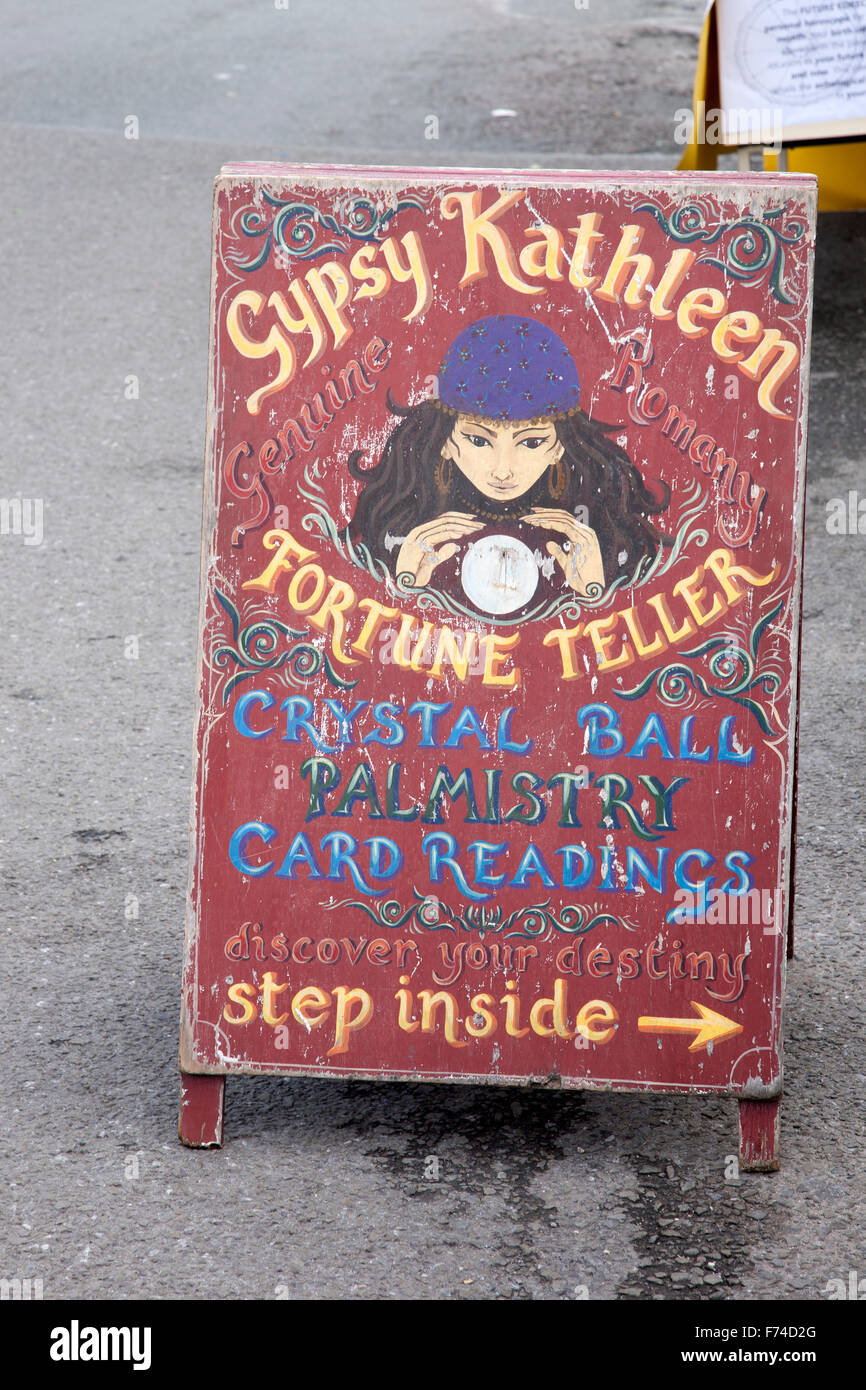 Gypsy Kathleen
Genuine Romany
FORTUNE TELLER
CRYSTAL BALL
PALMISTRY
CARD READINGS
discover your destiny
step inside
alamy
Image ID: F74D2G
www.alamy.com